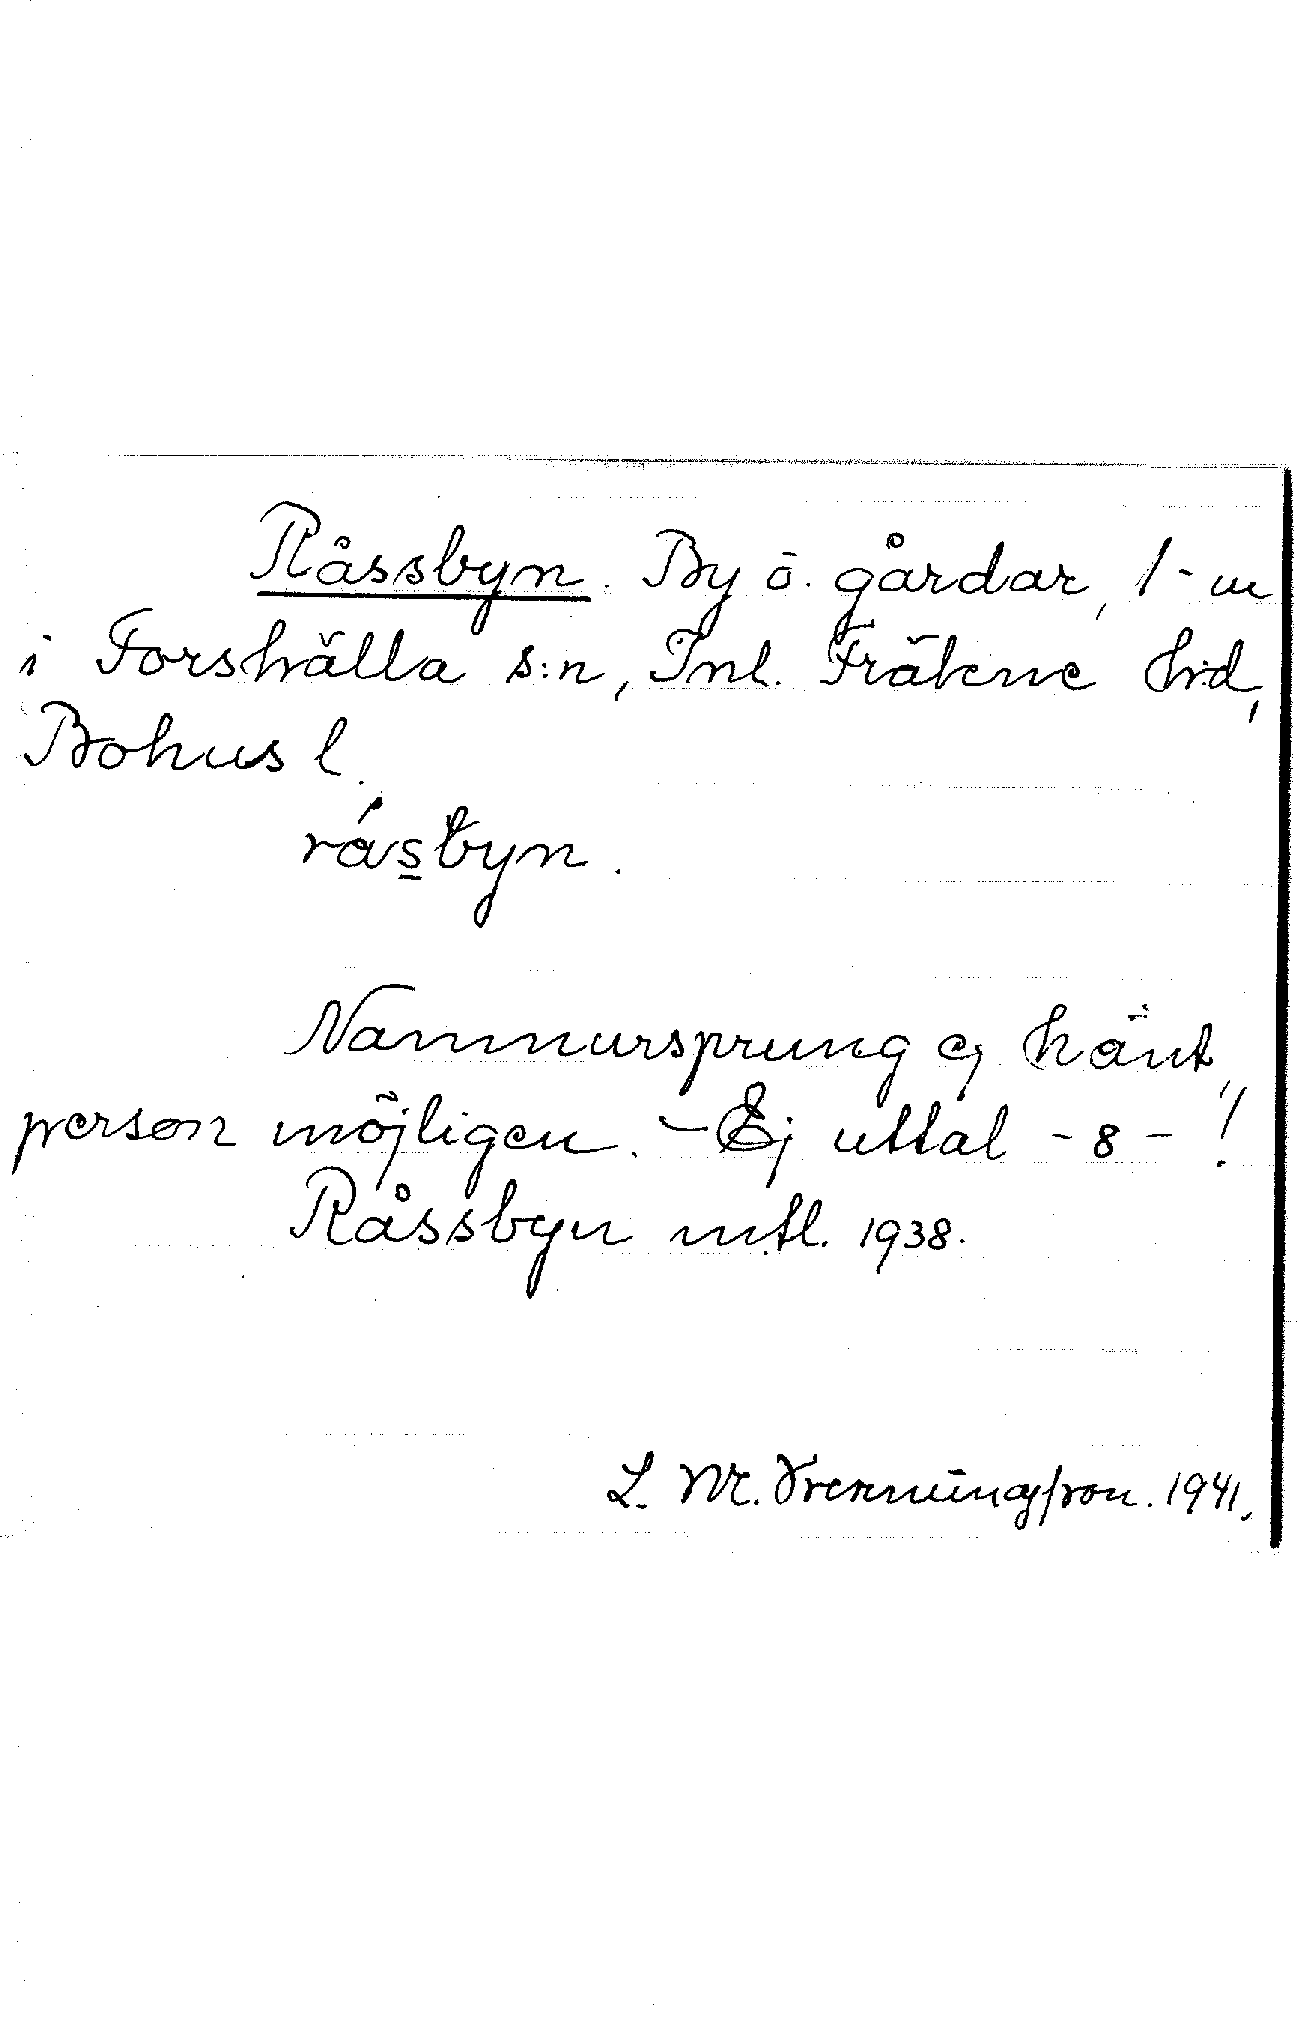 Råssbyn. By o. gårdar, 1-m
i Forshälla s:n, Inl. Fräkne hd,
Bohus l.
råsbyn.
Namnursprung ej känt,
person möjligen. - Ej uttal -8- !
Råssbyn mtl. 1938.
L. W. 1941.